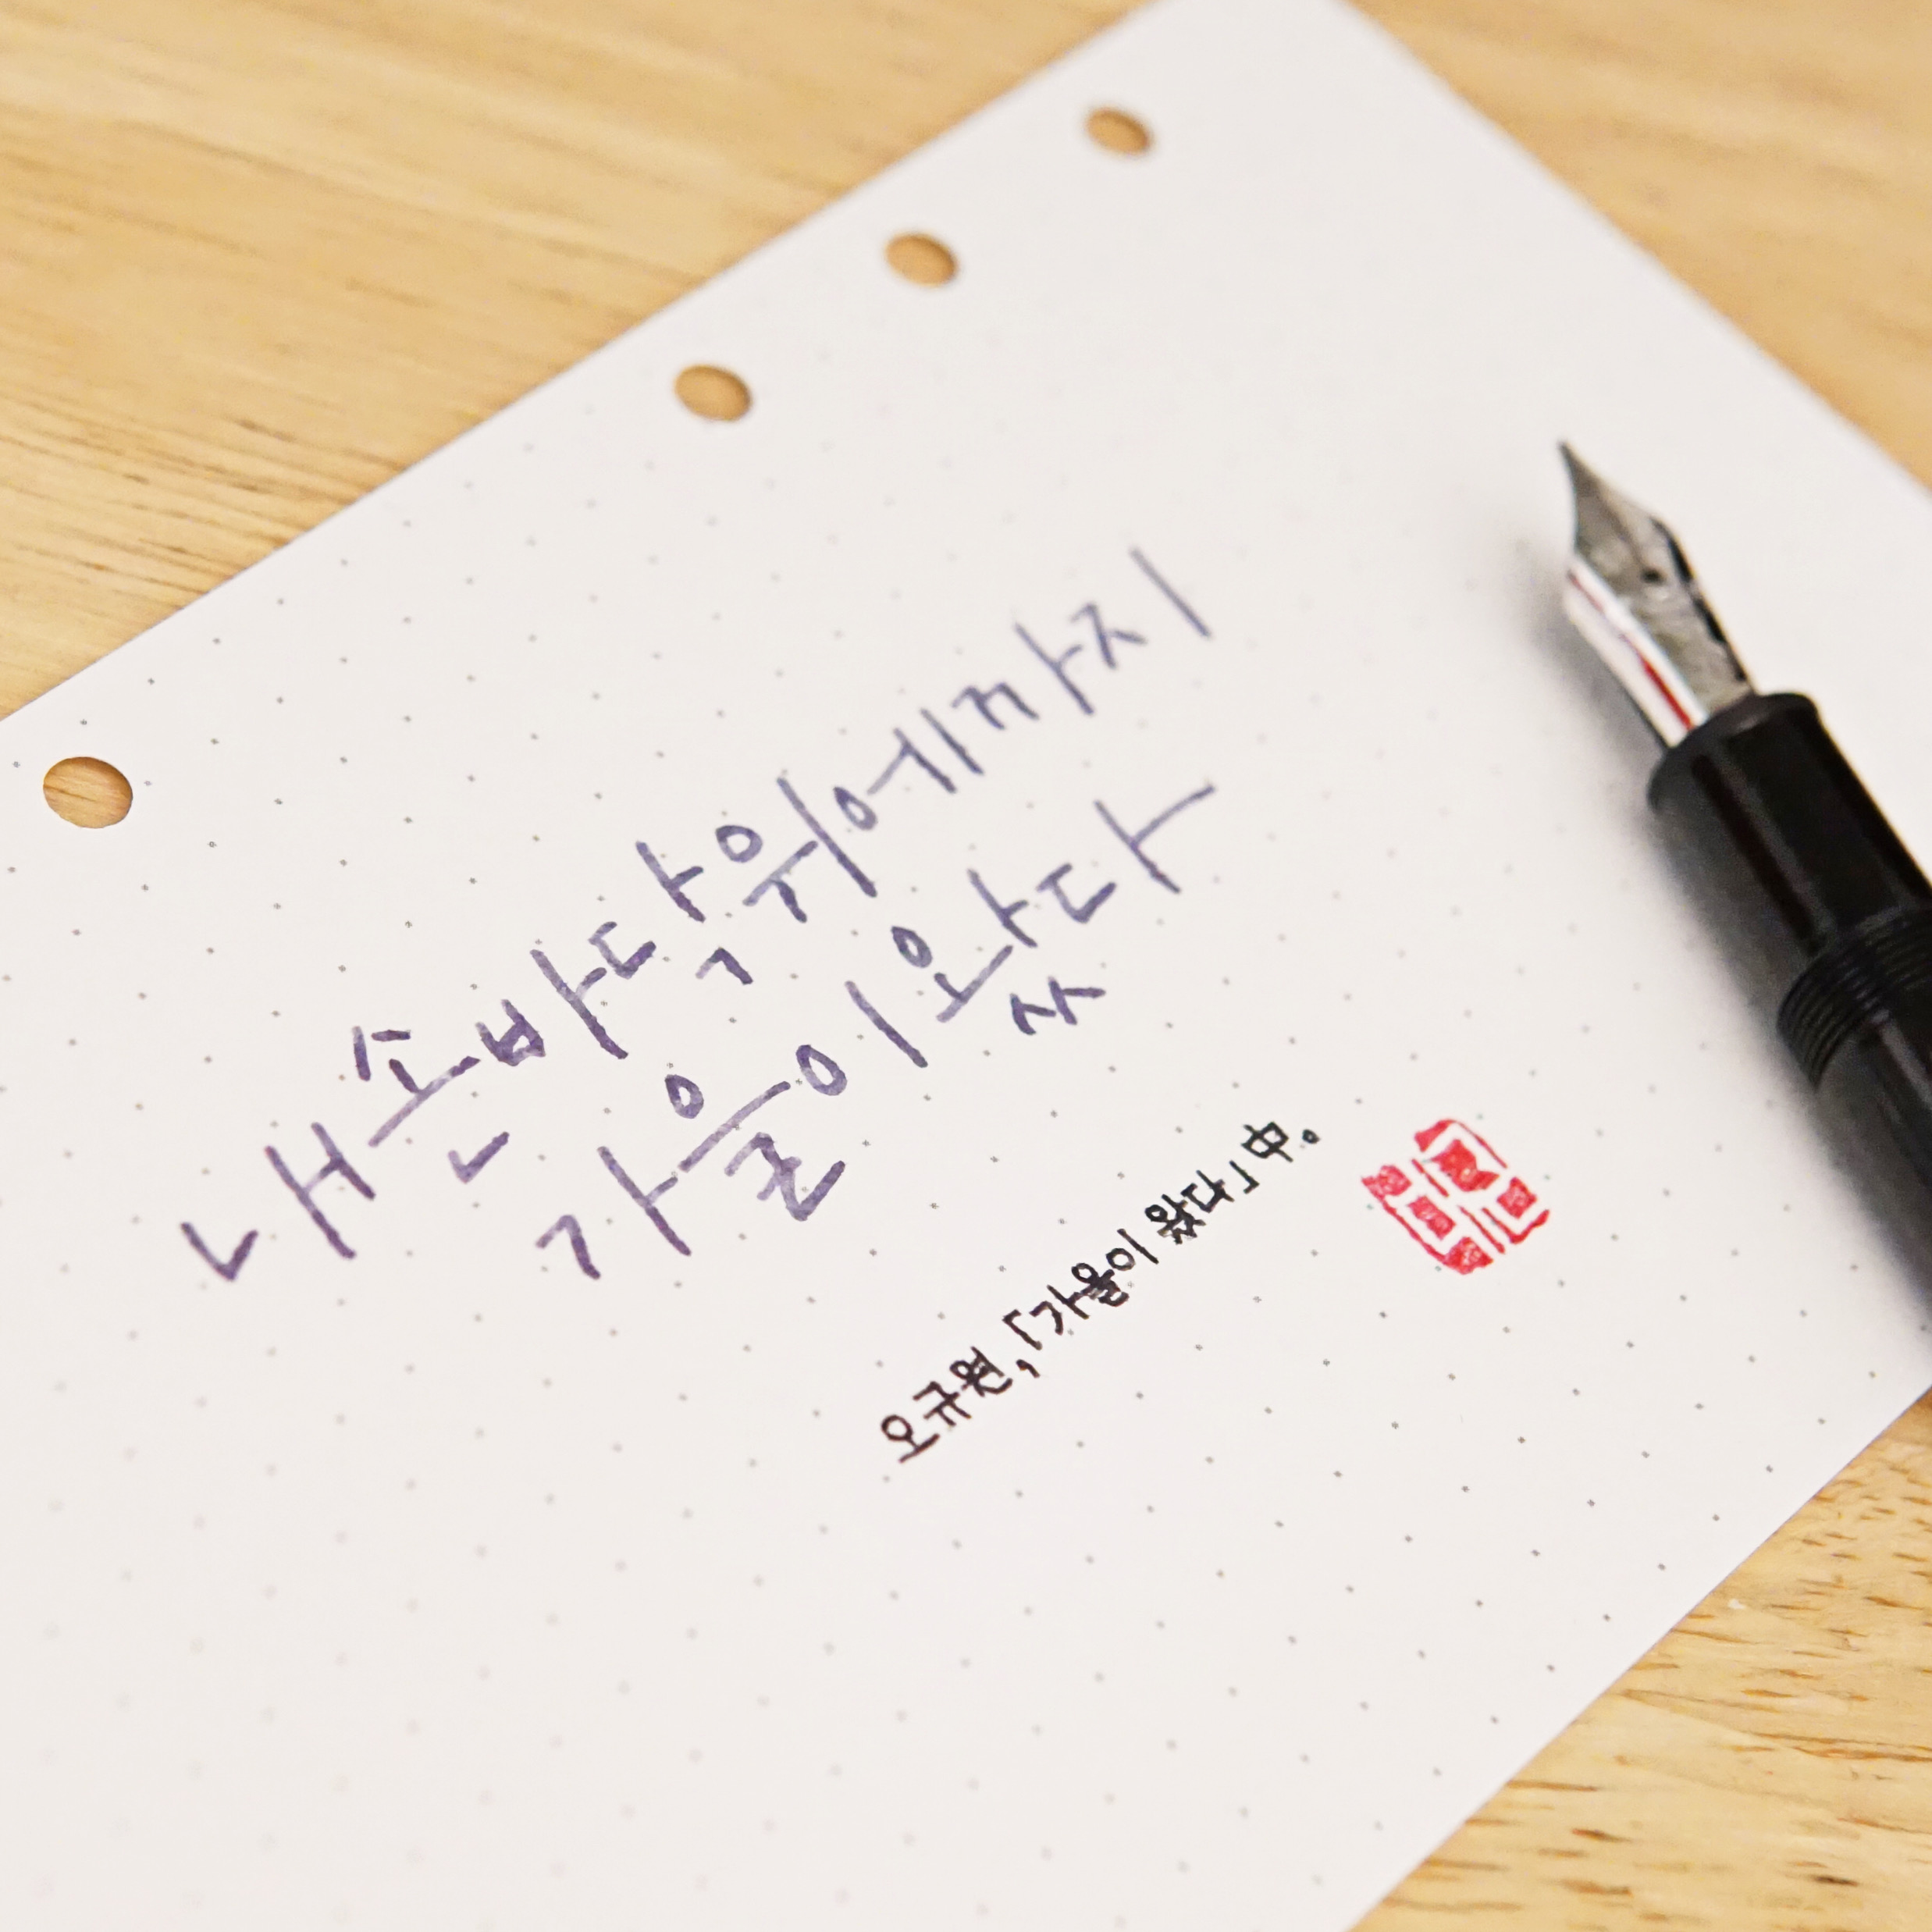 내 손바닥 위에까지
가을이 왔다
오규원, 「가을이 왔다」 中.